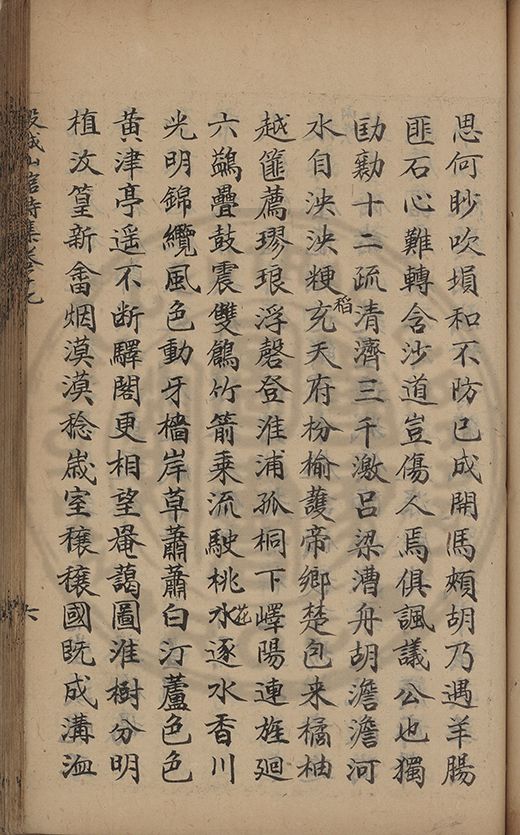 思何眇吹塤和不防已成開馬頰胡乃遇羊腸
匪石心難轉含沙道豈傷人焉俱諷議公也獨
劻勷十二疏清濟三千激呂梁漕舟胡澹澹河
水自泱泱粳稻充天府枌榆護帝鄉楚包来橘柚
越篚薦璆琅浮磬登淮浦孤桐下嶧陽連旌廻
六鷁疊鼓震雙鶬竹箭乗流駛桃水花逐水香川
光明錦纜風色動牙檣岸草蕭蕭白汀蘆色色
黄津亭遥不断驛閣更相望藹圖淮樹分明
植汶篁新畬烟漠漠稔嵗室穰穰國既成溝洫
穀城山館詩集卷十九
六